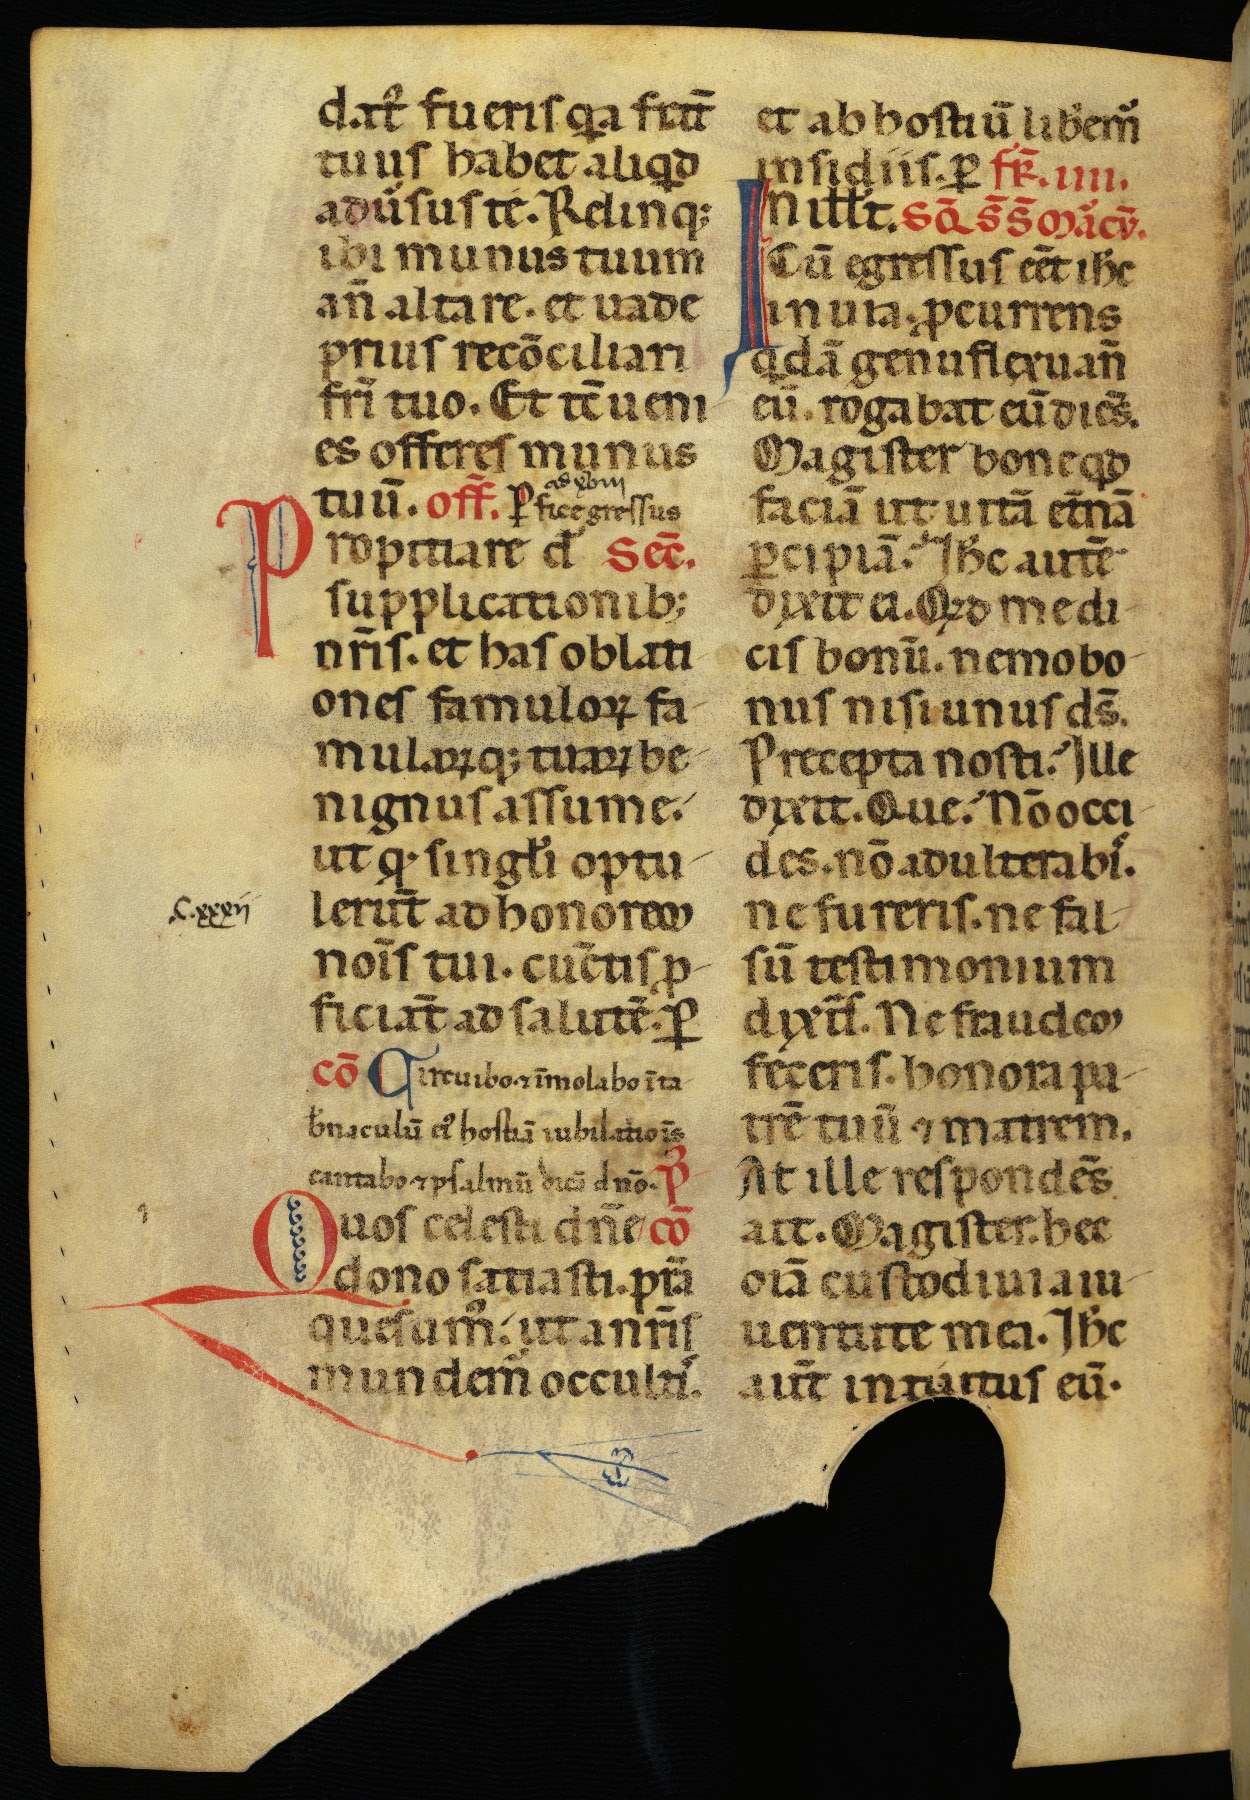 dat᷒ fueris q̇a frat̄
tuus habet aliqd
adūsus te. Relinq;
ibi munus tuum
an̄ altare. et uade
prius recōciliari
fr̄i tuo. Et tc̄ ueni
es offeres munus
tuū. off̄. ꝑfice gressus
ropitiare d̄ Sec̄.
supplicationib;
nr̄is. et has oblati
ones famuloꝝ fa
mulaꝝq; tuaꝝ be
nignus assume.
ut q singl̄i optu
C.xxxii
lerūt ad honorem
noīs tui. cūctis ꝓ
ficiāt ad salutē. ꝑ
cō Circuibo ⁊ īmolabo ī ta
b̄naculū ei᷒ hostiā iubilatiōis
cantabo ⁊ psalmū dicā dn̄o. P᷒
Quos celesti dn̄e cō
dono satiasti. pr̄a
quesum᷒. ut a nr̄is
mundem̄ occultis.
et ab hostiū liberem᷒
insidiis. ꝑ fr̄. iiii.
In ill̄t. Sq̄ S̄S̄ Marcū.
Cū egressus eēt ih̄c
in uia. ꝓcurrens
q̇dā genuflexu an̄
eū. rogabat eū dicēs.
Magister bone qd
faciā ut uitā et̄nā
ꝑcipiā. Ih̄c autē
dixit ei. Qd me di
cis bonū. nemo bo
nus nisi unus ds̄.
Precepta nosti. Ille
dixit. Que. Nō occi
des. nō adulterabis.
ne fureris. ne fal
sū testimonium
dixeris. Ne fraudem
feceris. honora pa
trē tuū ⁊ matrem.
At ille respondēs
ait. Magister. hec
oīa custodiui a iu
uentute mea. Ih̄c
aut̄ intuitus eū.